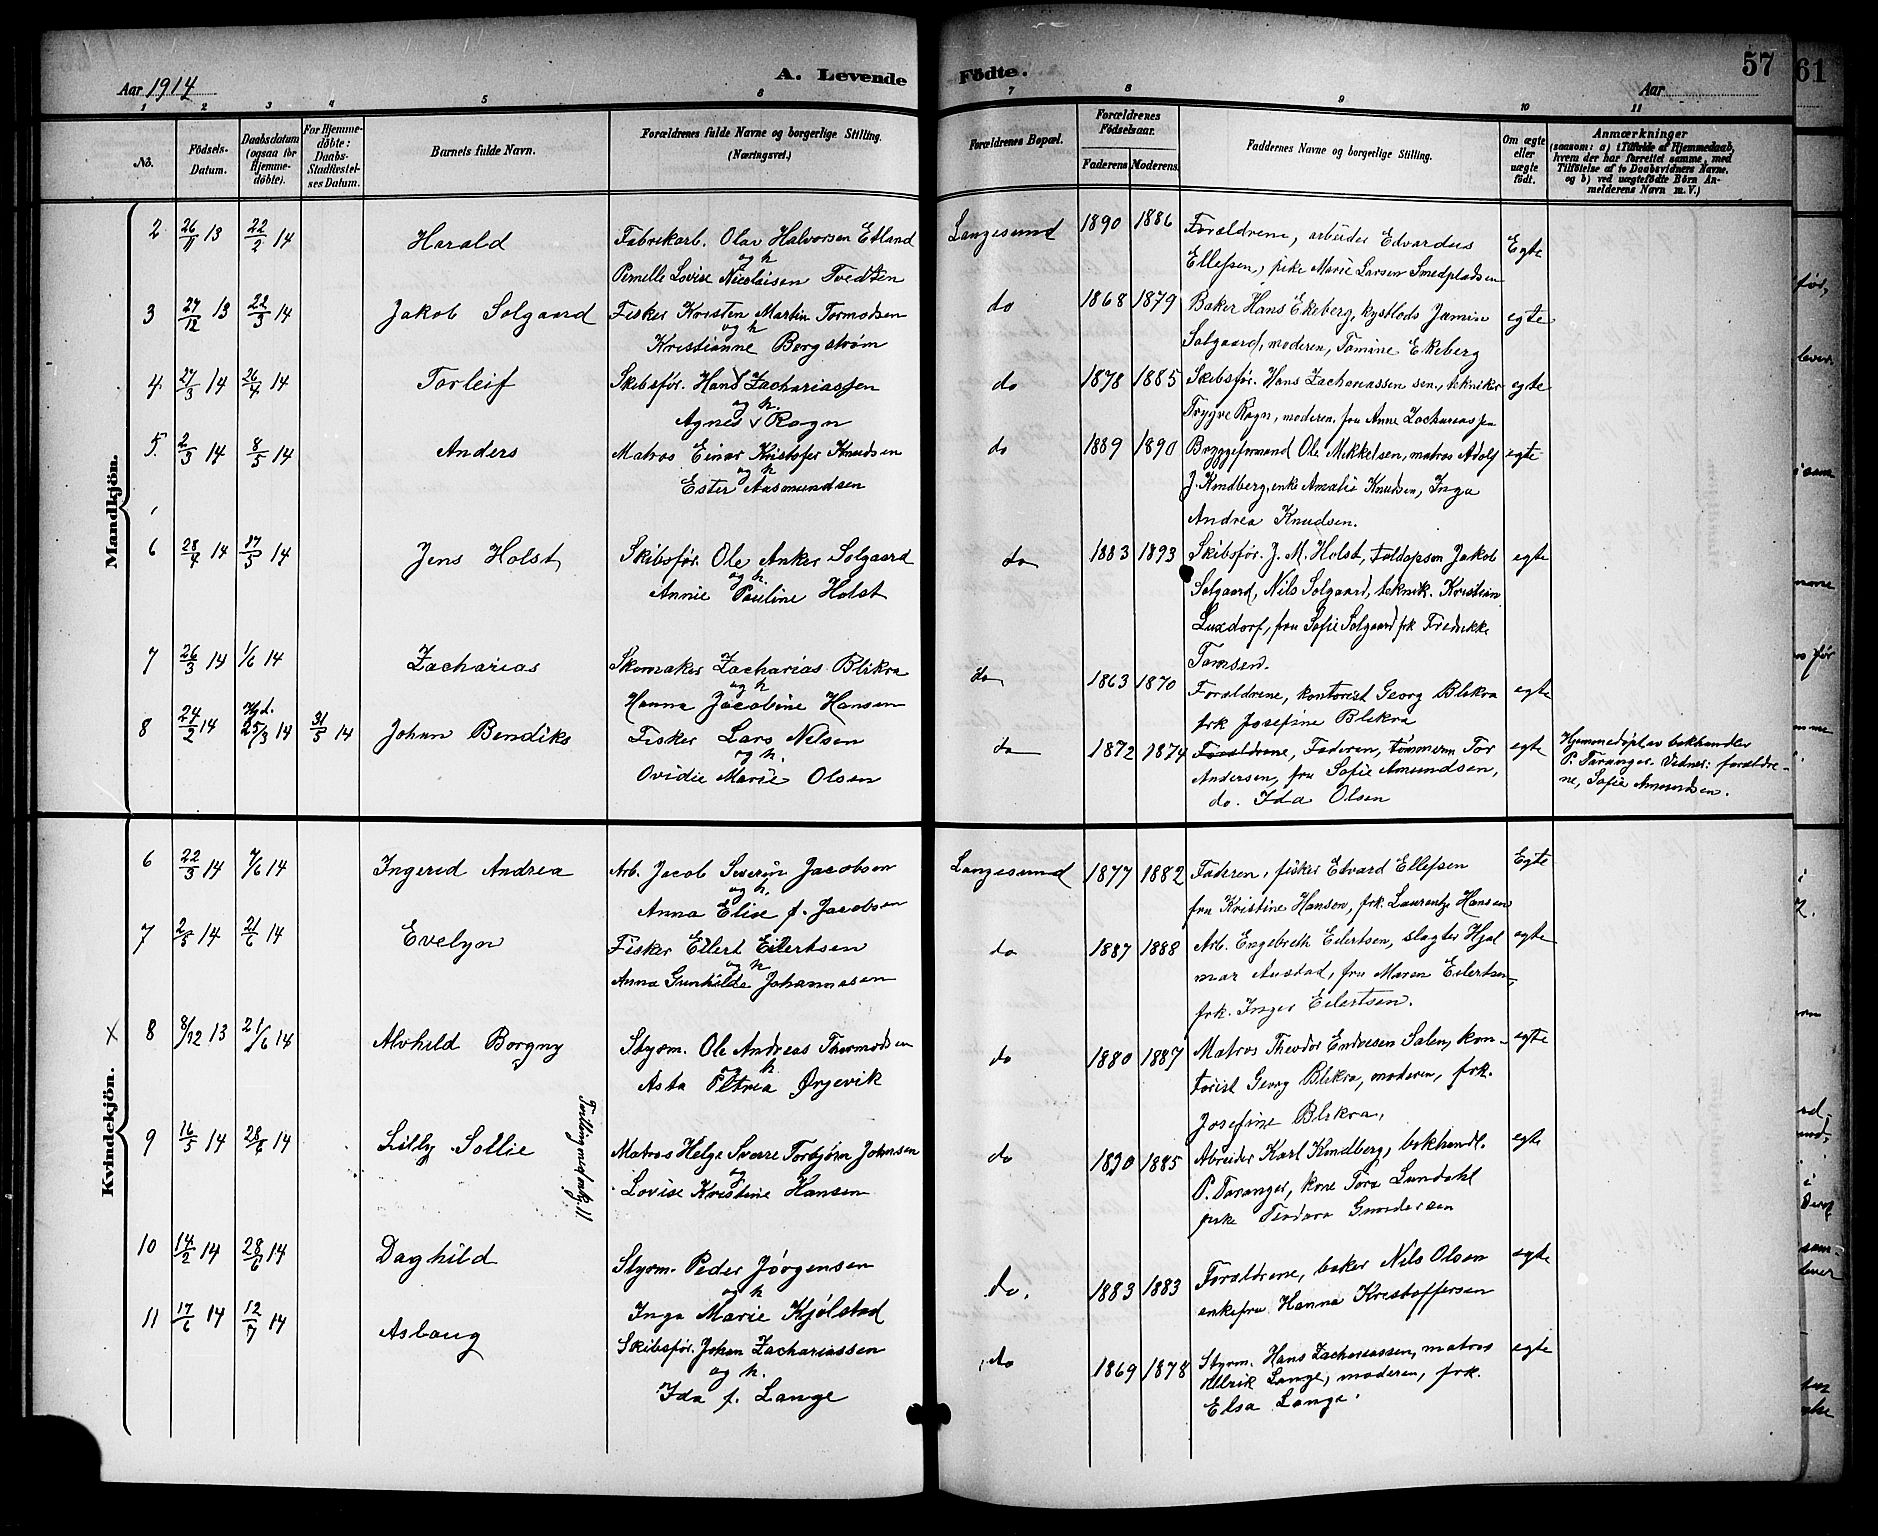 Aar 1914
A. Levende
Födte.
Aar
57
61
1 2 3 4 5 6 7 8 9 10 11
No.
Födsels-Datum.
Daabsdatum (ogsaa for Hjemme-döbte).
For Hjemme-döbte: Daabs-Stadfæstel-ses Datum.
Barnets fulde Navn.
Forældrenes fulde Navne og borgerlige Stilling. (Næringsvei.)
Forældrenes Bopæl.
Forældrenes Födselsaar.
Faderens Moderens.
Faddernes Navne og borgerlige Stilling.
Om ægte eller uægte födt.
Anmærkninger
(saasom: a) i Tilfælde af Hjemmedaab, hvem der har forrettet samme, med Tilföielse af to Daabsvidners Navne. og b) ved uægtefödte Börn An-melderens Navn m. V.)
Mandkjön.
2 26/11 13 22/2 14 Harald Fabrikarb. Olav Halvorsen Etland
og h
Pernelle Lovise Nicolaisen Tvedten
Langesund 1890 1886 Forældrene, arbeider Edvardus
Ellefsen, pike Marie Larsen Smedpladsen
Egte
3 27/12 13 22/3 14 Jakob Solgaard Fisker Kristen Martin Tormodsen
og h
Kristianne Bergstrøm
do 1868 1879 Baker Hans Ekeberg, kystlods Jamin
Solgaard, moderen, Tomine Ekeberg
egte
4 27/3 14 26/4 14 Torleif Skibsfør. Hans Zachariassen
og h.
Agnes Rogn
do 1878 1885 Skibsfør. Hans Zachariassen sen., tekniker
Trygve Rogn, moderen, fru Anne Zachariassen
egte
5. 2/3 14 8/5 14 Anders Matros Einar Kristofer Knudsen
og h
Ester Aasmundsen
do 1889 1890 Bryggeformand Ole Mikkelsen, matros Adolf
J. Kindberg, enke Amalie Knudsen, Inga
Andrea Knudsen.
egte
6 28/4 14 17/5 14 Jens Holst Skibsfør. Ole Anker Solgaard
og h.
Annie Pauline Holst
do 1883 1893 Skibsfør. J. M. Holst, toldopsm Jakob
Solgaard, Nils Solgaard, teknik. Kristian
Luxdorf, fru Sofie Solgaard frk Fredrikke
Tomsen.
egte
7 26/3 14 1/6 14 Zacharias Skomaker Zacharias Blikra
og h
Hanna Jacobine Hansen
do 1863 1870 Forældrene, kontorist Georg Blikra
frk Josefine Blikra
egte
8 24/2 14 Hjd. 25/3 14 31/5 14 Johan Bendiks Fisker Lars Nilsen
og h.
Ovidie Marie Olsen
do 1872 1874 Forældrene, Faderen, tømmerm Tor
Andersen, fru Sofie Amundsen,
do. Ida Olsen
egte
Hjemmedøpt av bokhandler
P. Taranger. Vidner: forældre-
ne, Sofie Amundsen.
Kvindekjön.
6 22/3 14 7/6 14 Ingerid Andrea Arb. Jacob Severin Jacobsen
og h.
Anna Elise f. Jacobsen
Langesund 1877 1882 Faderen, fisker Edvard Ellefsen
fru Kristine Hansen, frk. Laurentze Hansen
Egte
7 2/5 14 21/6 14 Evelyn Fisker Eilert Eilertsen
og h
Anna Gunhilde Johannesen
do 1887 1888 Arb. Engebreth Eilertsen, slagter Hjal
mar Austad, fru Maren Eilertsen,
frk. Inger Eilertsen.
egte
X 8 8/12 13 21/6 14 Alvhild Borgny Styrm. Ole Andreas Thormodsen
og h
Asta Petrea Ørjevik
do 1880 1887 Matros Theodor Endresen Salen, kon-
torist Georg Blikra, moderen, frk.
Josefine Blikra,
egte
9 16/5 14 28/6 14 Lilly Sollie Matros Helge Sverre Torbjørn Johnsen
og
Lovise Kristine Hansen
Tvilling med nr. 11
do 1890 1885 Abreider Karl Kindberg, bokhandl.
P. Taranger, kone Tora Lundahl
pike Teodora Gundersen
egte
10 14/2 14 28/6 14 Daghild Styrm. Peder Jörgensen
og h
Inga Marie Kjølstad
do. 1883 1883 Forældrene, baker Nils Olsen
enkefru Hanna Kristoffersen
egte
11 17/6 14 12/7 14 Aslaug Skibsfør. Johan Zachariassen
og h.
Ida f. Lange
do 1869 1878 Styrm. Hans Zachariassen, matros
Ulrik Lange, moderen, frk.
Elsa Lange.
egte